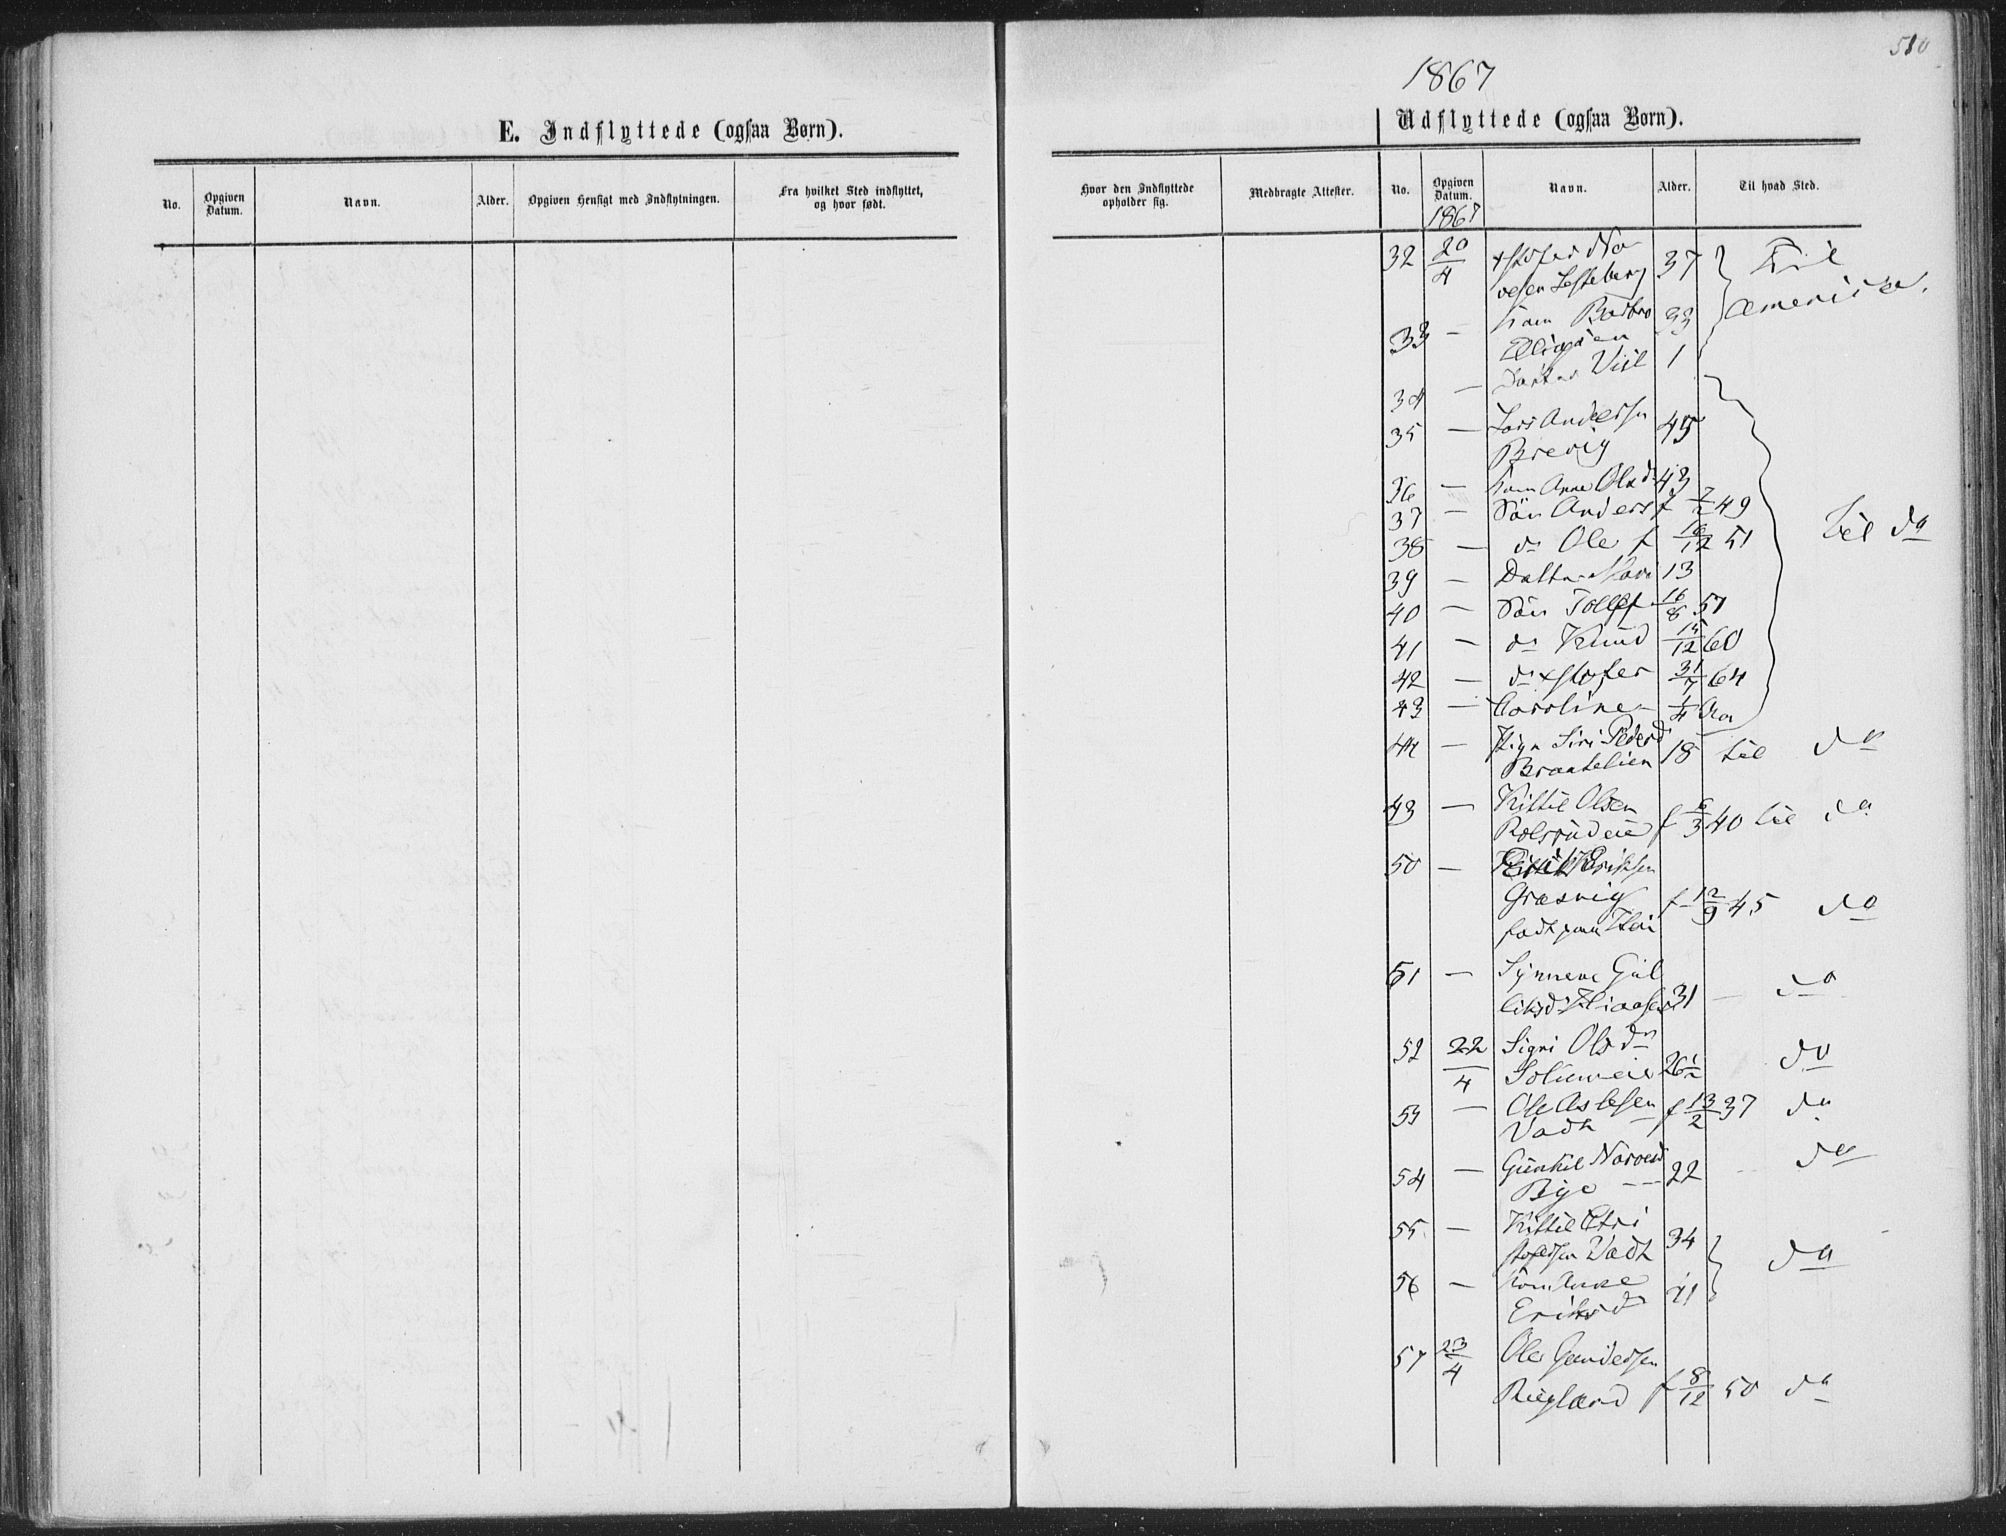 510
1867
E. Indflyttede (ogsaa Børn).
Udflyttede (ogsaa Born).
No.
Opgiven Datum.
Navn.
Alder.
Opgiven Hensigt med Indflytningen.
Fra hvilket Sted indflyttet, og hvor født.
Hvor den Indflyttede opholder sig.
Medbragte Attester.
No.
Opgiven Datum.
Navn.
Alder.
Til hvad Sted.
1867
32 20/4 xstofer Na- 37 Til
vesen Lesteberg America
33 — Barbro 33
34 — Datter 1
35 — Lars Andersen 45
Brevig
36 — Anne Olsd 43
37 — Søn Anders f 7/2 49
38 — do Ole f 16/12 51 til do
39 — Datter Kari 13
40 — Søn Tollef 16/8 57
41 — do Knud 15/12 60
42 — do xstofer 31/7 64
43 — Caroline 1/4
44 — Pige Siri Pedersd
Braatelien 18 til do
43 — Kittil Olsen
f 6/3 40 til do
50 — Eriksen
Græsvig f 12/9 45 do
født paa
51 — Synneve Gul
liksd 31 — do
52 22/4 Sigri Olsdr do
26½
53 — Ole Aslesen f 13/2 37 do
Vadt
54 — Gunhil Narvesd do
Bye — 22
55 — Kittil Chri
stofersen Vadt 34
do
56 —
Eriksdr
57 23/4 Ole Gundersen
f 8/12 50 do